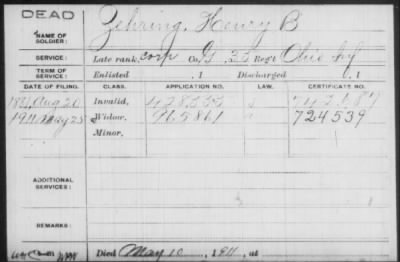 DEAD
NAME OF SOLDIER: Zehring, Henry B
SERVICE: Late rank, Corp Co. G, 35 Reg't Ohio Inf
TERM OF SERVICE: Enlisted , 1 Discharged , 1
DATE OF FILING. CLASS. APPLICATION NO. LAW. CERTIFICATE NO.
Aug 20 Invalid,
1911 May 25 Widow, 965861 724539
Minor,
ADDITIONAL SERVICES:
REMARKS:
Died May 10, 1911, at